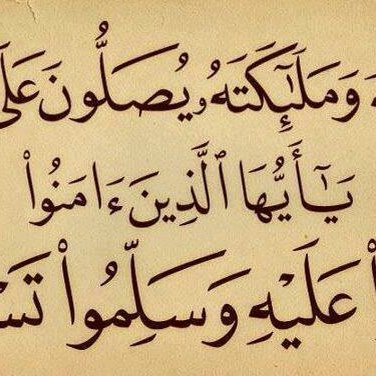 وَمَلَٰٓئِكَتَهُۥ يُصَلُّونَ عَلَى
يَٰٓأَيُّهَا ٱلَّذِينَ ءَامَنُوا۟
عَلَيْهِ وَسَلِّمُوا۟